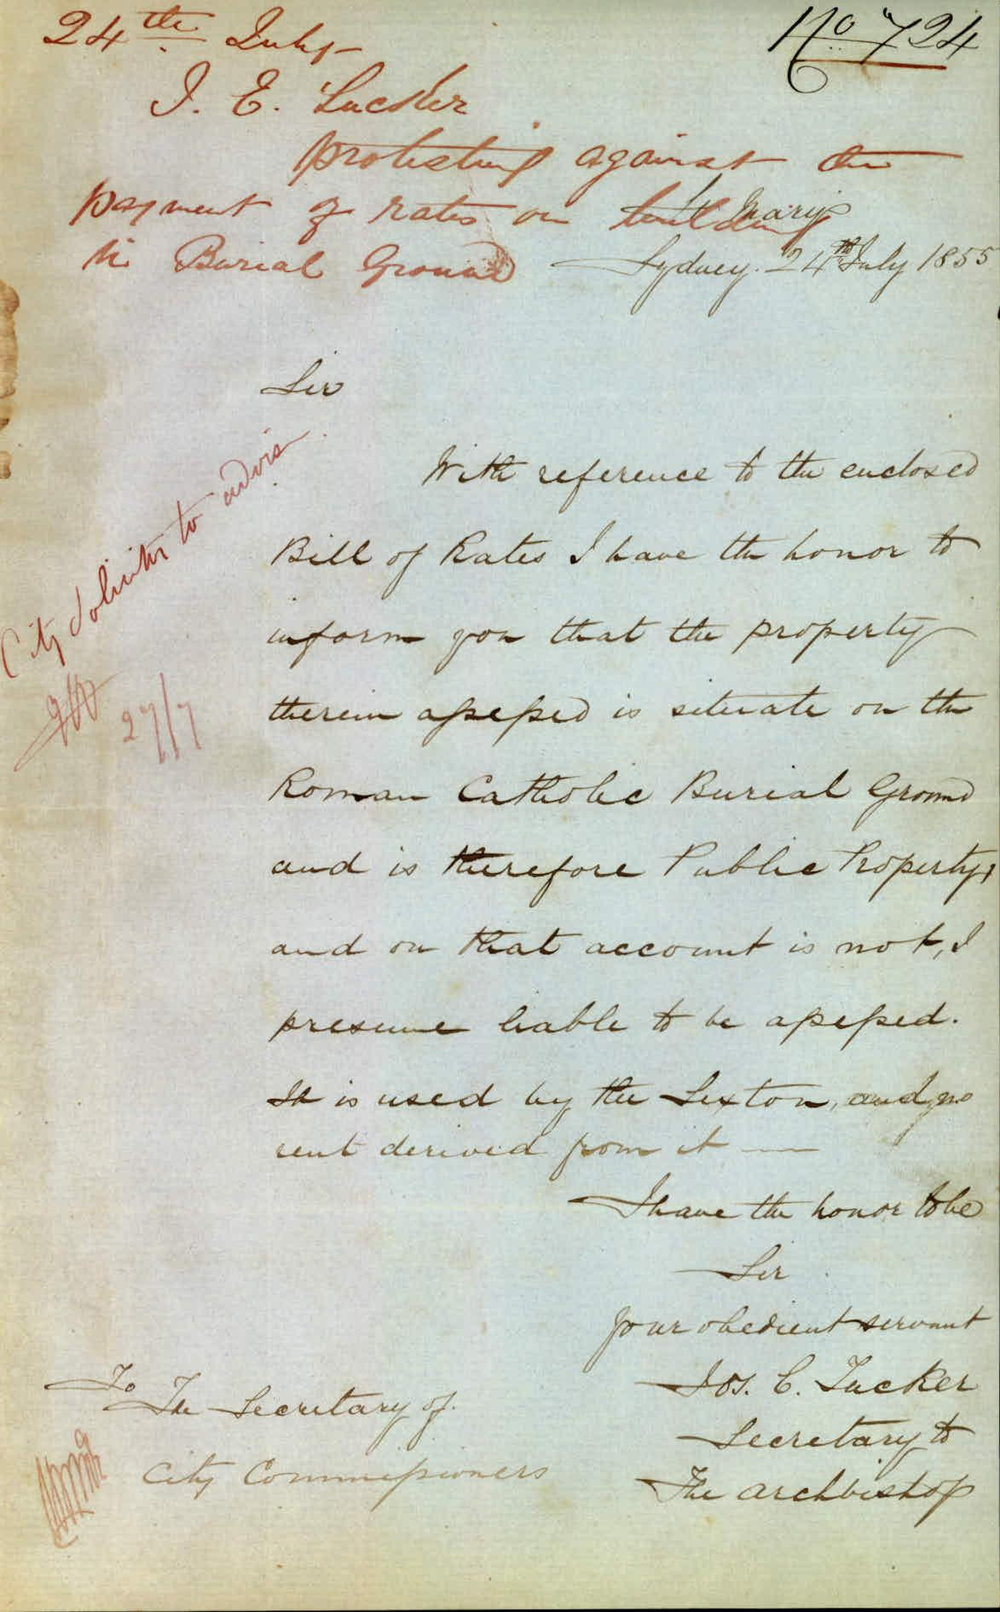 24th July
No 724
J. E. Tucker
protesting against the
payment of rates on building
in Burial Ground
St Marys
Sydney. 24th July 1855
Sir
With reference to the enclosed
Bill of Rates I have the honor to
inform you that the property
therein assessed is situate on the
Roman Catholic Burial Ground
and is therefore Public Property,
and on that account is not, I
presume liable to be assessed.
It is used by the Sexton, and no
rent derived from it —
I have the honor to be
Sir
Your obedient servant
Jos. C. Tucker
Secretary to
The Archbishop
To
The Secretary of
City Commissioners
City Solicitor to advis
27/7